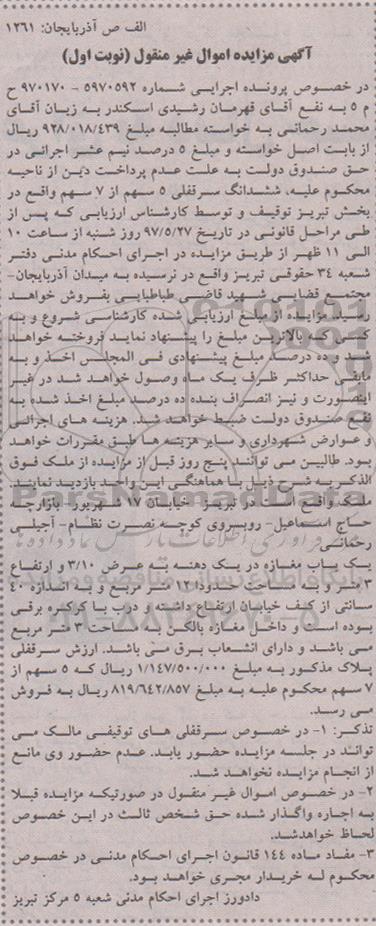 الف ص آذربایجان: ۱۲۶۱
آگهی مزایده اموال غیر منقول (نوبت اول)
در خصوص پرونده اجرایی شماره ۵۹۷۰۵۹۲ - ۹۷۰۱۷۰ ح
م ۵ به نفع آقای قهرمان رشیدی اسکندر به زیان آقای
محمد رحمانی به خواسته مطالبه مبلغ ۹۲۸/۰۱۸/۴۳۹ ریال
از بابت اصل خواسته و مبلغ ۵ درصد نیم عشر اجرائی در
حق صندوق دولت به علت عدم پرداخت دین از ناحیه
محکوم علیه، ششدانگ سرقفلی ۵ سهم از ۷ سهم واقع در
بخش تبریز توقیف و توسط کارشناس ارزیابی که پس از
طی مراحل قانونی در تاریخ ۹۷/۵/۲۷ روز شنبه از ساعت ۱۰
الی ۱۱ ظهر از طریق مزایده در اجرای احکام مدنی دفتر
شعبه ۳۴ حقوقی تبریز واقع در نرسیده به میدان آذربایجان-
مجتمع قضایی شهید قاضی طباطبایی بفروش خواهد
رسید. مزایده از مبلغ ارزیابی شده کارشناسی شروع و به
کسی که بالاترین مبلغ را پیشنهاد نماید فروخته خواهد
شد و ده درصد مبلغ پیشنهادی فی المجلس اخذ و به
مابقی حداکثر ظرف یک ماه وصول خواهد شد در غیر
اینصورت و نیز انصراف بنده ده درصد مبلغ اخذ شده به
نفع صندوق دولت ضبط خواهد شد. هزینه های اجرائی
و عوارض شهرداری و سایر هزینه ها طبق مقررات خواهد
بود. طالبین می توانند پنج روز قبل از مزایده از ملک فوق
الذکر به شرح ذیل با هماهنگی این واحد بازدید نمایند.
ملک واقع است در تبریز- خیابان ۱۷ شهریور- بازارچه
حاج اسماعیل- روبسروی کوچه نصرت نظام- آجیلی
رحمانی
یک باب مغازه در یک دهنه به عرض ۳/۱۰ و ارتفاع
۳ متر و به مساحت حدودا ۱۲ متر مربع و به اندازه ۴۰
سانتی از کف خیابان ارتفاع داشته و درب با کرکره برقی
بوده است و داخل مغازه بالکن به مساحت ۳ متر مربع
می باشد و دارای انشعاب برق می باشد. ارزش سرقفلی
پلاک مذکور به مبلغ ۱/۱۴۷/۵۰۰/۰۰۰ ریال که ۵ سهم از
۷ سهم محکوم علیه به مبلغ ۸۱۹/۶۴۲/۸۵۷ ریال به فروش
می رسد.
تذکر: ۱- در خصوص سرقفلی های توقیفی مالک می
تواند در جلسه مزایده حضور یابد. عدم حضور وی مانع
از انجام مزایده نخواهد شد.
۲- در خصوص اموال غیر منقول در صورتیکه مزایده قبلا
به اجاره واگذار شده حق شخص ثالث در این خصوص
لحاظ خواهدشد.
۳- مفاد ماده ۱۴۴ قانون اجرای احکام مدنی در خصوص
محکوم له خریدار مجری خواهد بود.
دادورز اجرای احکام مدنی شعبه ۵ مرکز تبریز
ParsNamadData